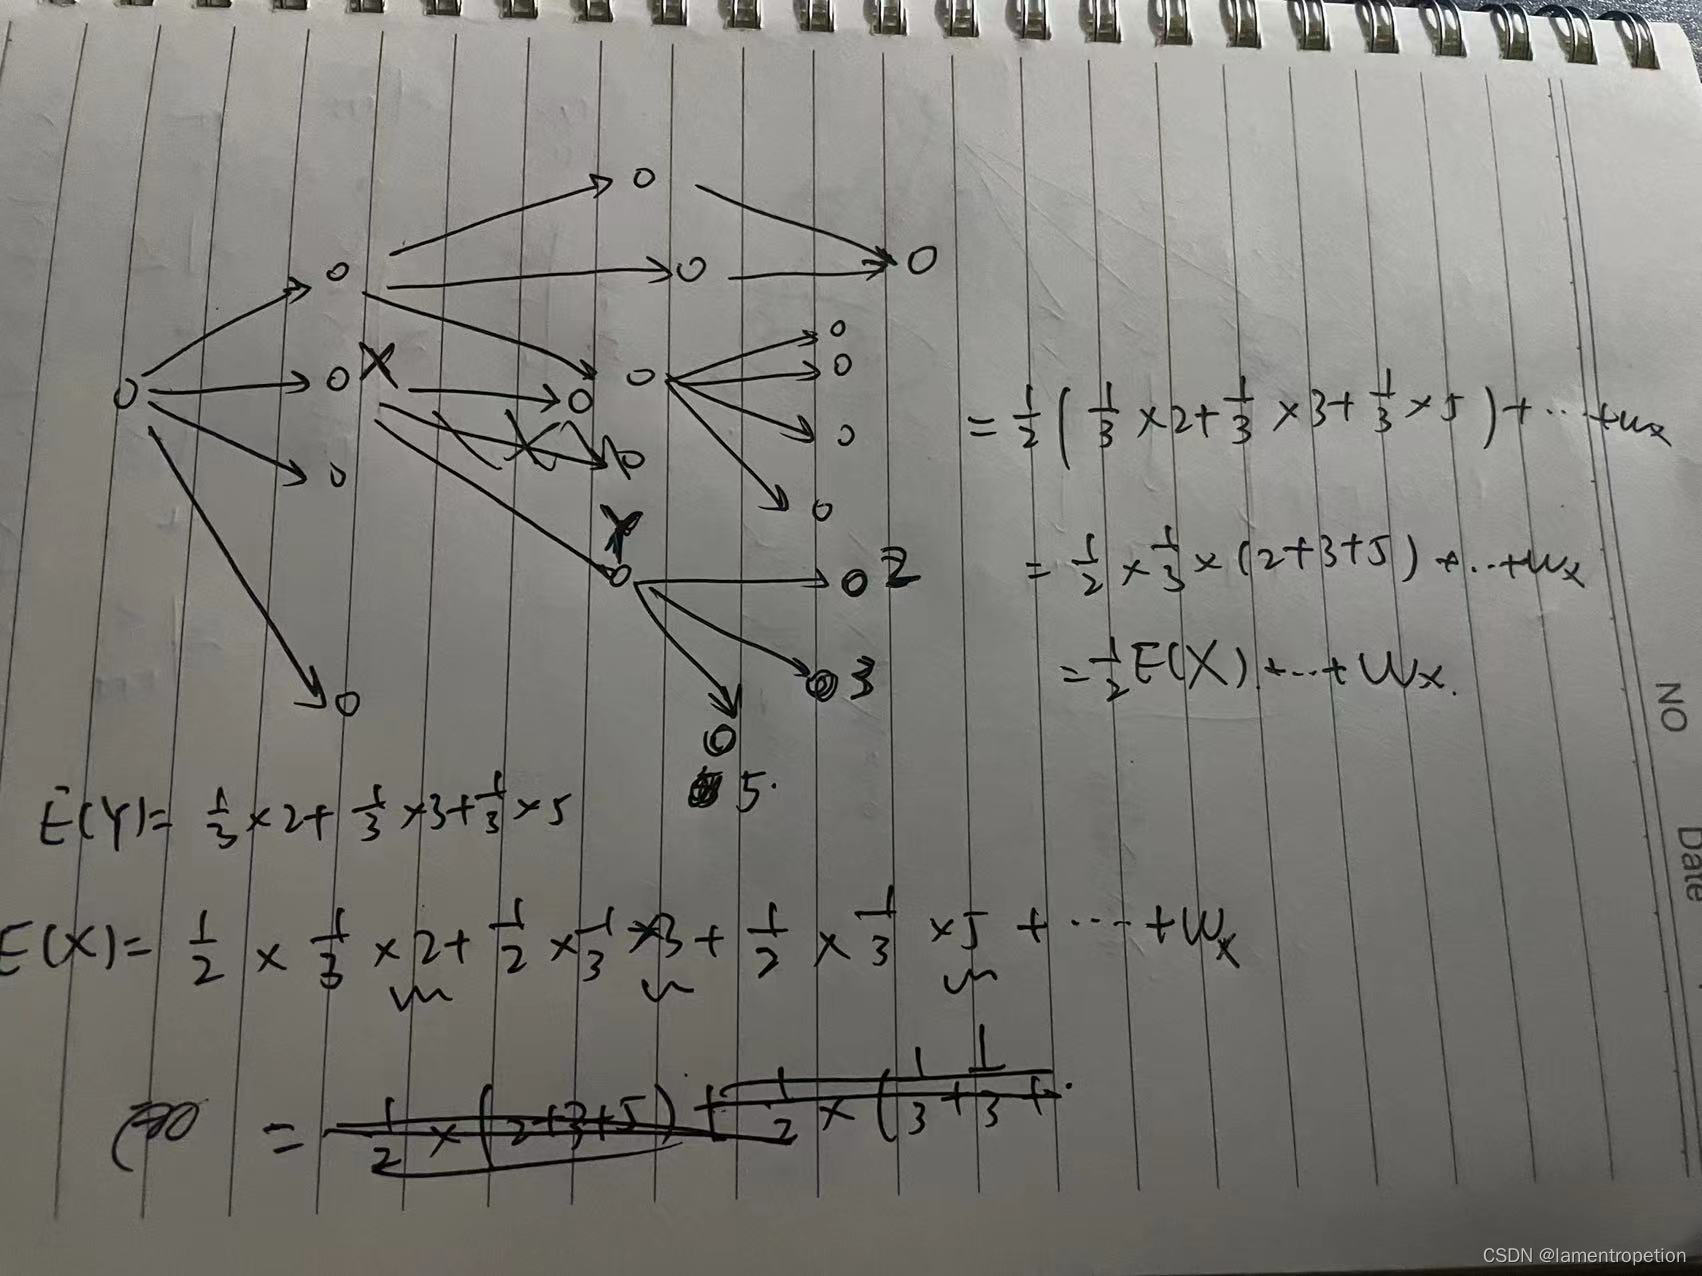 X
Y
2
3
5.
= 1/2 ( 1/3 ×2+ 1/3 ×3+ 1/3 ×5 ) + ... + wx
= 1/2 × 1/3 × (2+3+5) + ... + wx
= 1/2 E(X) + ... + Wx.
E(Y)= 1/3 ×2+ 1/3 ×3+ 1/3 ×5
E(X)= 1/2 × 1/3 ×2+ 1/2 × 1/3 ×3+ 1/2 × 1/3 ×5 + ... + Wx
= 1/2 × (2+3+5) + 1/2 × ( 1/3 + 1/3 +
NO
Date
CSDN @lamentropetion